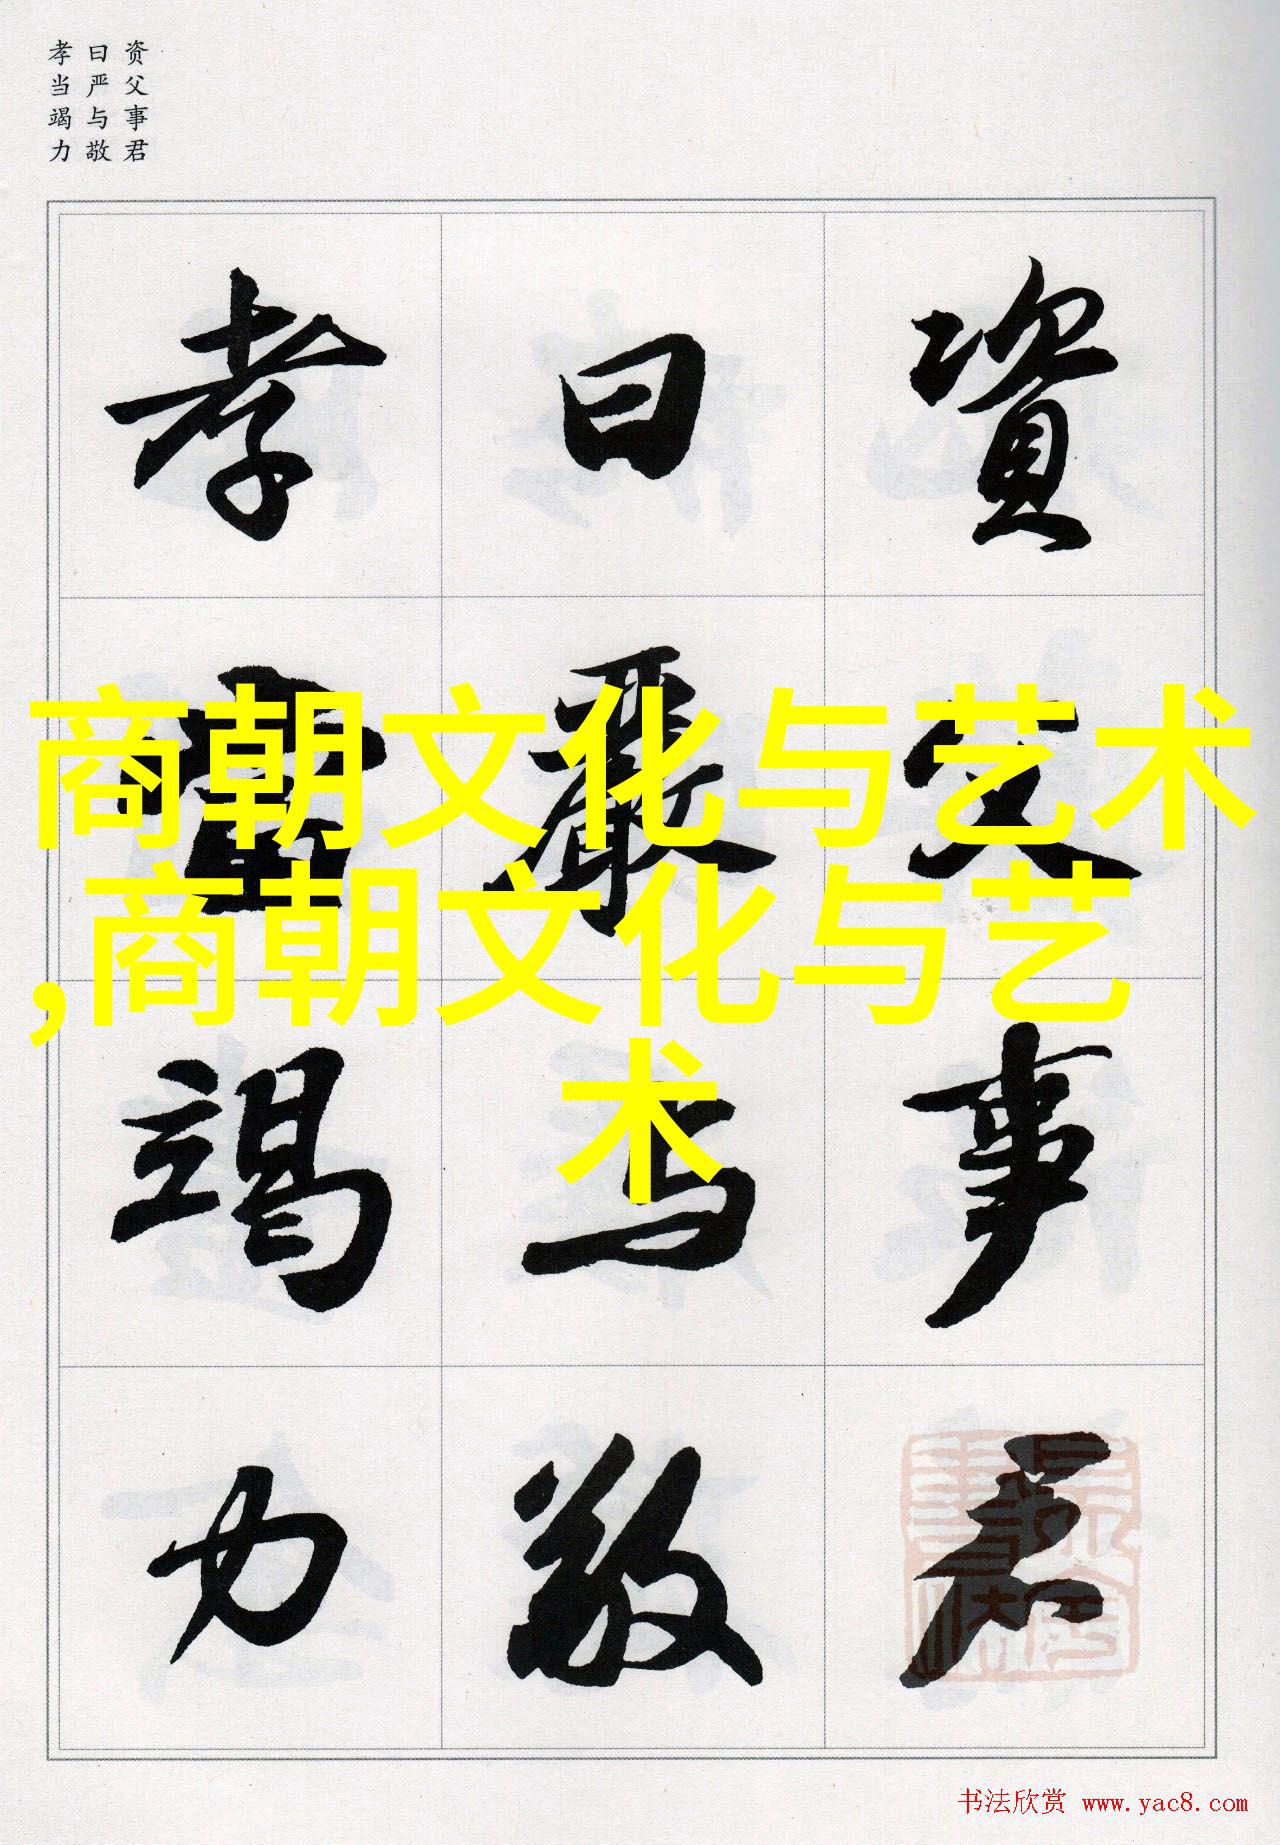 资父事君
曰严与敬
孝当竭力
資父事君
曰嚴与敬
孝當竭力
商朝文化与艺术
,商朝文化与艺
术
书法欣赏 www.yac8.com